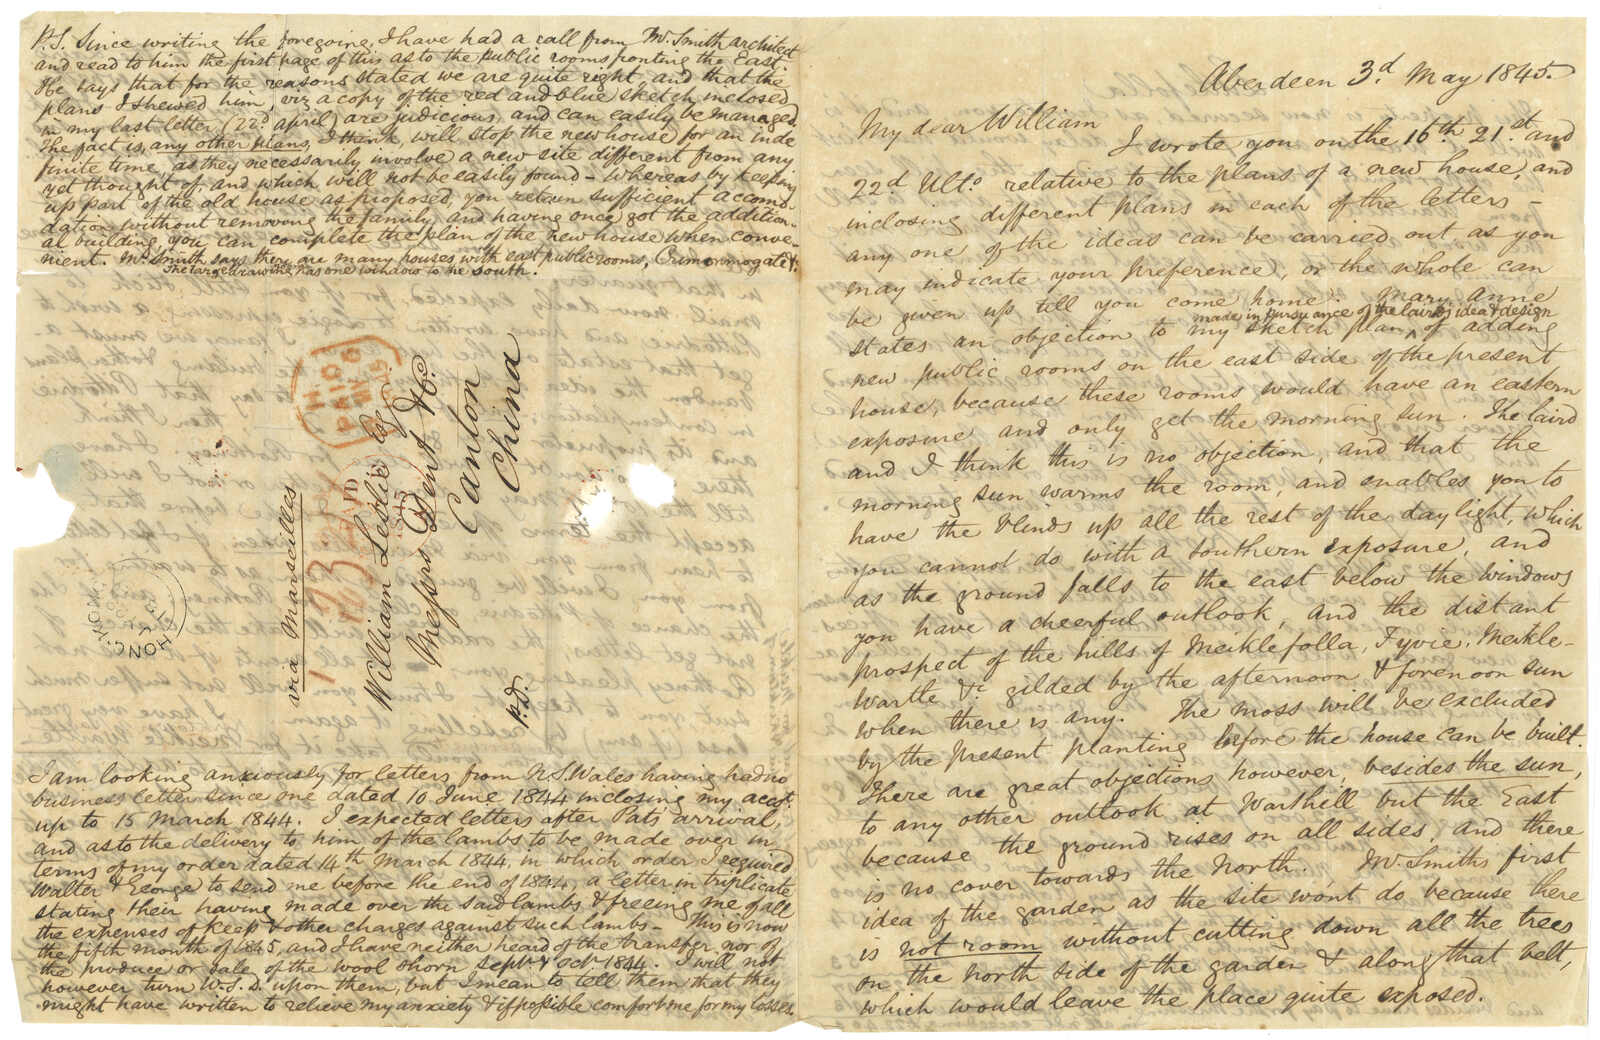 Aberdeen 3.d May 1845.
My dear William
I wrote you on the 16th. 21.st and
22.d Ulto. relative to the plans of a new house, and
inclosing different plans in each of the letters –
any one of the ideas can be carried out as you
may indicate your preference, or the whole can
be given up till you come home. Mary Anne
made in pursuance of the laird's idea & design
states an objection to my sketch plan ^ of adding
new public rooms on the east side of the present
house, because these rooms would have an eastern
exposure and only get the morning sun. The laird
and I think this is no objection, and that the
morning sun warms the room, and enables you to
have the blinds up all the rest of the daylight, which
you cannot do with a Southern exposure, and
as the ground falls to the east below the windows
you have a cheerful outlook, and the distant
prospect of the hills of Meiklefolla, Fyvie, Meikle-
wartle &c. gilded by the afternoon & forenoon sun
when there is any. The moss will be excluded
by the present planting before the house can be built.
There are great objections however, besides the sun,
to any other outlook at Warthill but the East
because the ground rises on all sides, and there
is no cover towards the North. Mr. Smiths first
idea of the garden as the site wont do because there
is not room without cutting down all the trees
on the north side of the garden & along that belt,
which would leave the place quite exposed.
P.S. Since writing the foregoing, I have had a call from Mr. Smith architect
and read to him the first page of this as to the public rooms fronting the East.
He says that for the reasons stated we are quite right, and that the
plans I shewed him, viz a copy of the red and blue sketch inclosed
in my last letter (22.d April) are judicious and can easily be managed.
The fact is, any other plans, I think, will stop the new house for an inde
finite time, as they necessarily involve a new site different from any
yet thought of, and which will not be easily found – whereas by keeping
up part of the old house as proposed, you retain sufficient accomo-
dation without removing the family, and having once got the addition-
al building, you can complete the plan of the new house when conve-
nient. Mr. Smith says there are many houses with east public rooms, Crimonmogate &c.
The large drawing has one window to the south.
PAID
PAID
1845
via Marseilles
William Leslie Esq
Messrs Dent & Co.
Canton
China
P.D.
HONG
I am looking anxiously for letters from N.S. Wales having had no
business letter since one dated 10 June 1844 inclosing my acct.
up to 15 March 1844. I expected letters after Pats arrival,
and as to the delivery to him of the lambs to be made over in
terms of my order dated 14th March 1844, in which order I required
Walter & George to send me before the end of 1844, a letter in triplicate
stating their having made over the said lambs & freeing me of all
the expenses of keep & other charges against such lambs – This is now
the fifth month of 1845, and I have neither heard of the transfer nor of
the produce or sale of the wool shorn Septr. & Octr. 1844. I will not
however turn W.S.D. upon them, but I mean to tell them that they
might have written to relieve my anxiety & if possible comfort me for my losses.